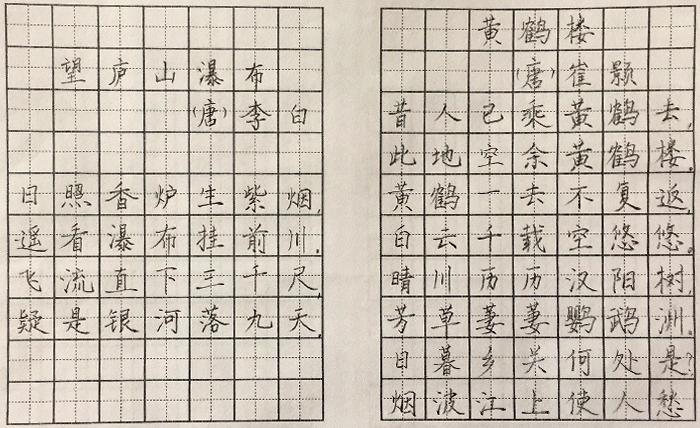 望庐山瀑布
(唐)李白
日照香炉生紫烟,
遥看瀑布挂前川.
飞流直下三千尺,
疑是银河落九天.
黄鹤楼
(唐)崔颢
昔人已乘黄鹤去,
此地空余黄鹤楼.
黄鹤一去不复返,
白云千载空悠悠.
晴川历历汉阳树,
芳草萋萋鹦鹉洲.
日暮乡关何处是?
烟波江上使人愁